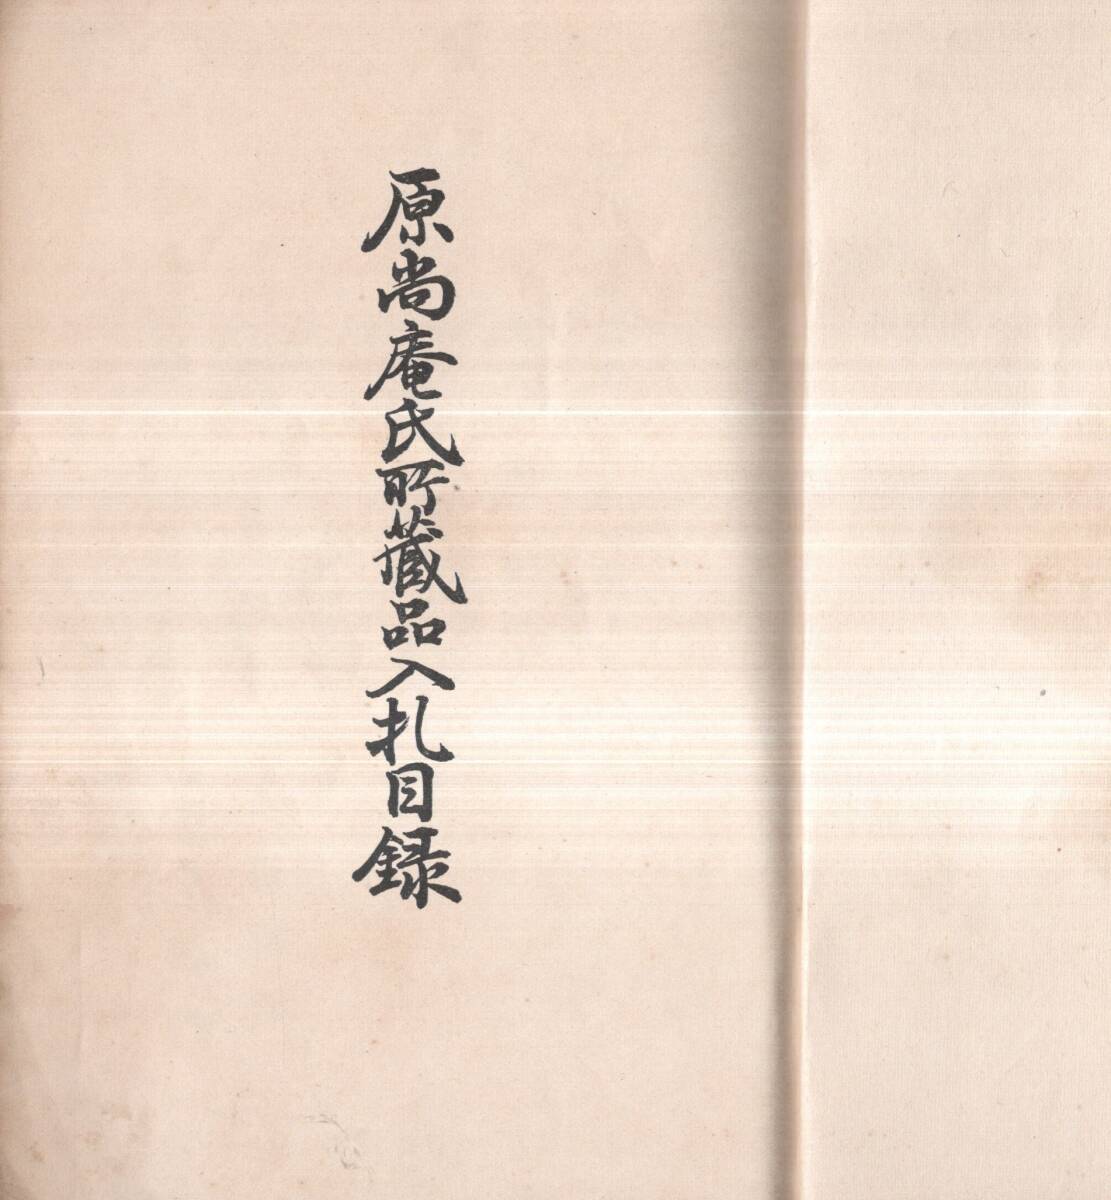 原尚庵氏所藏品入札目録